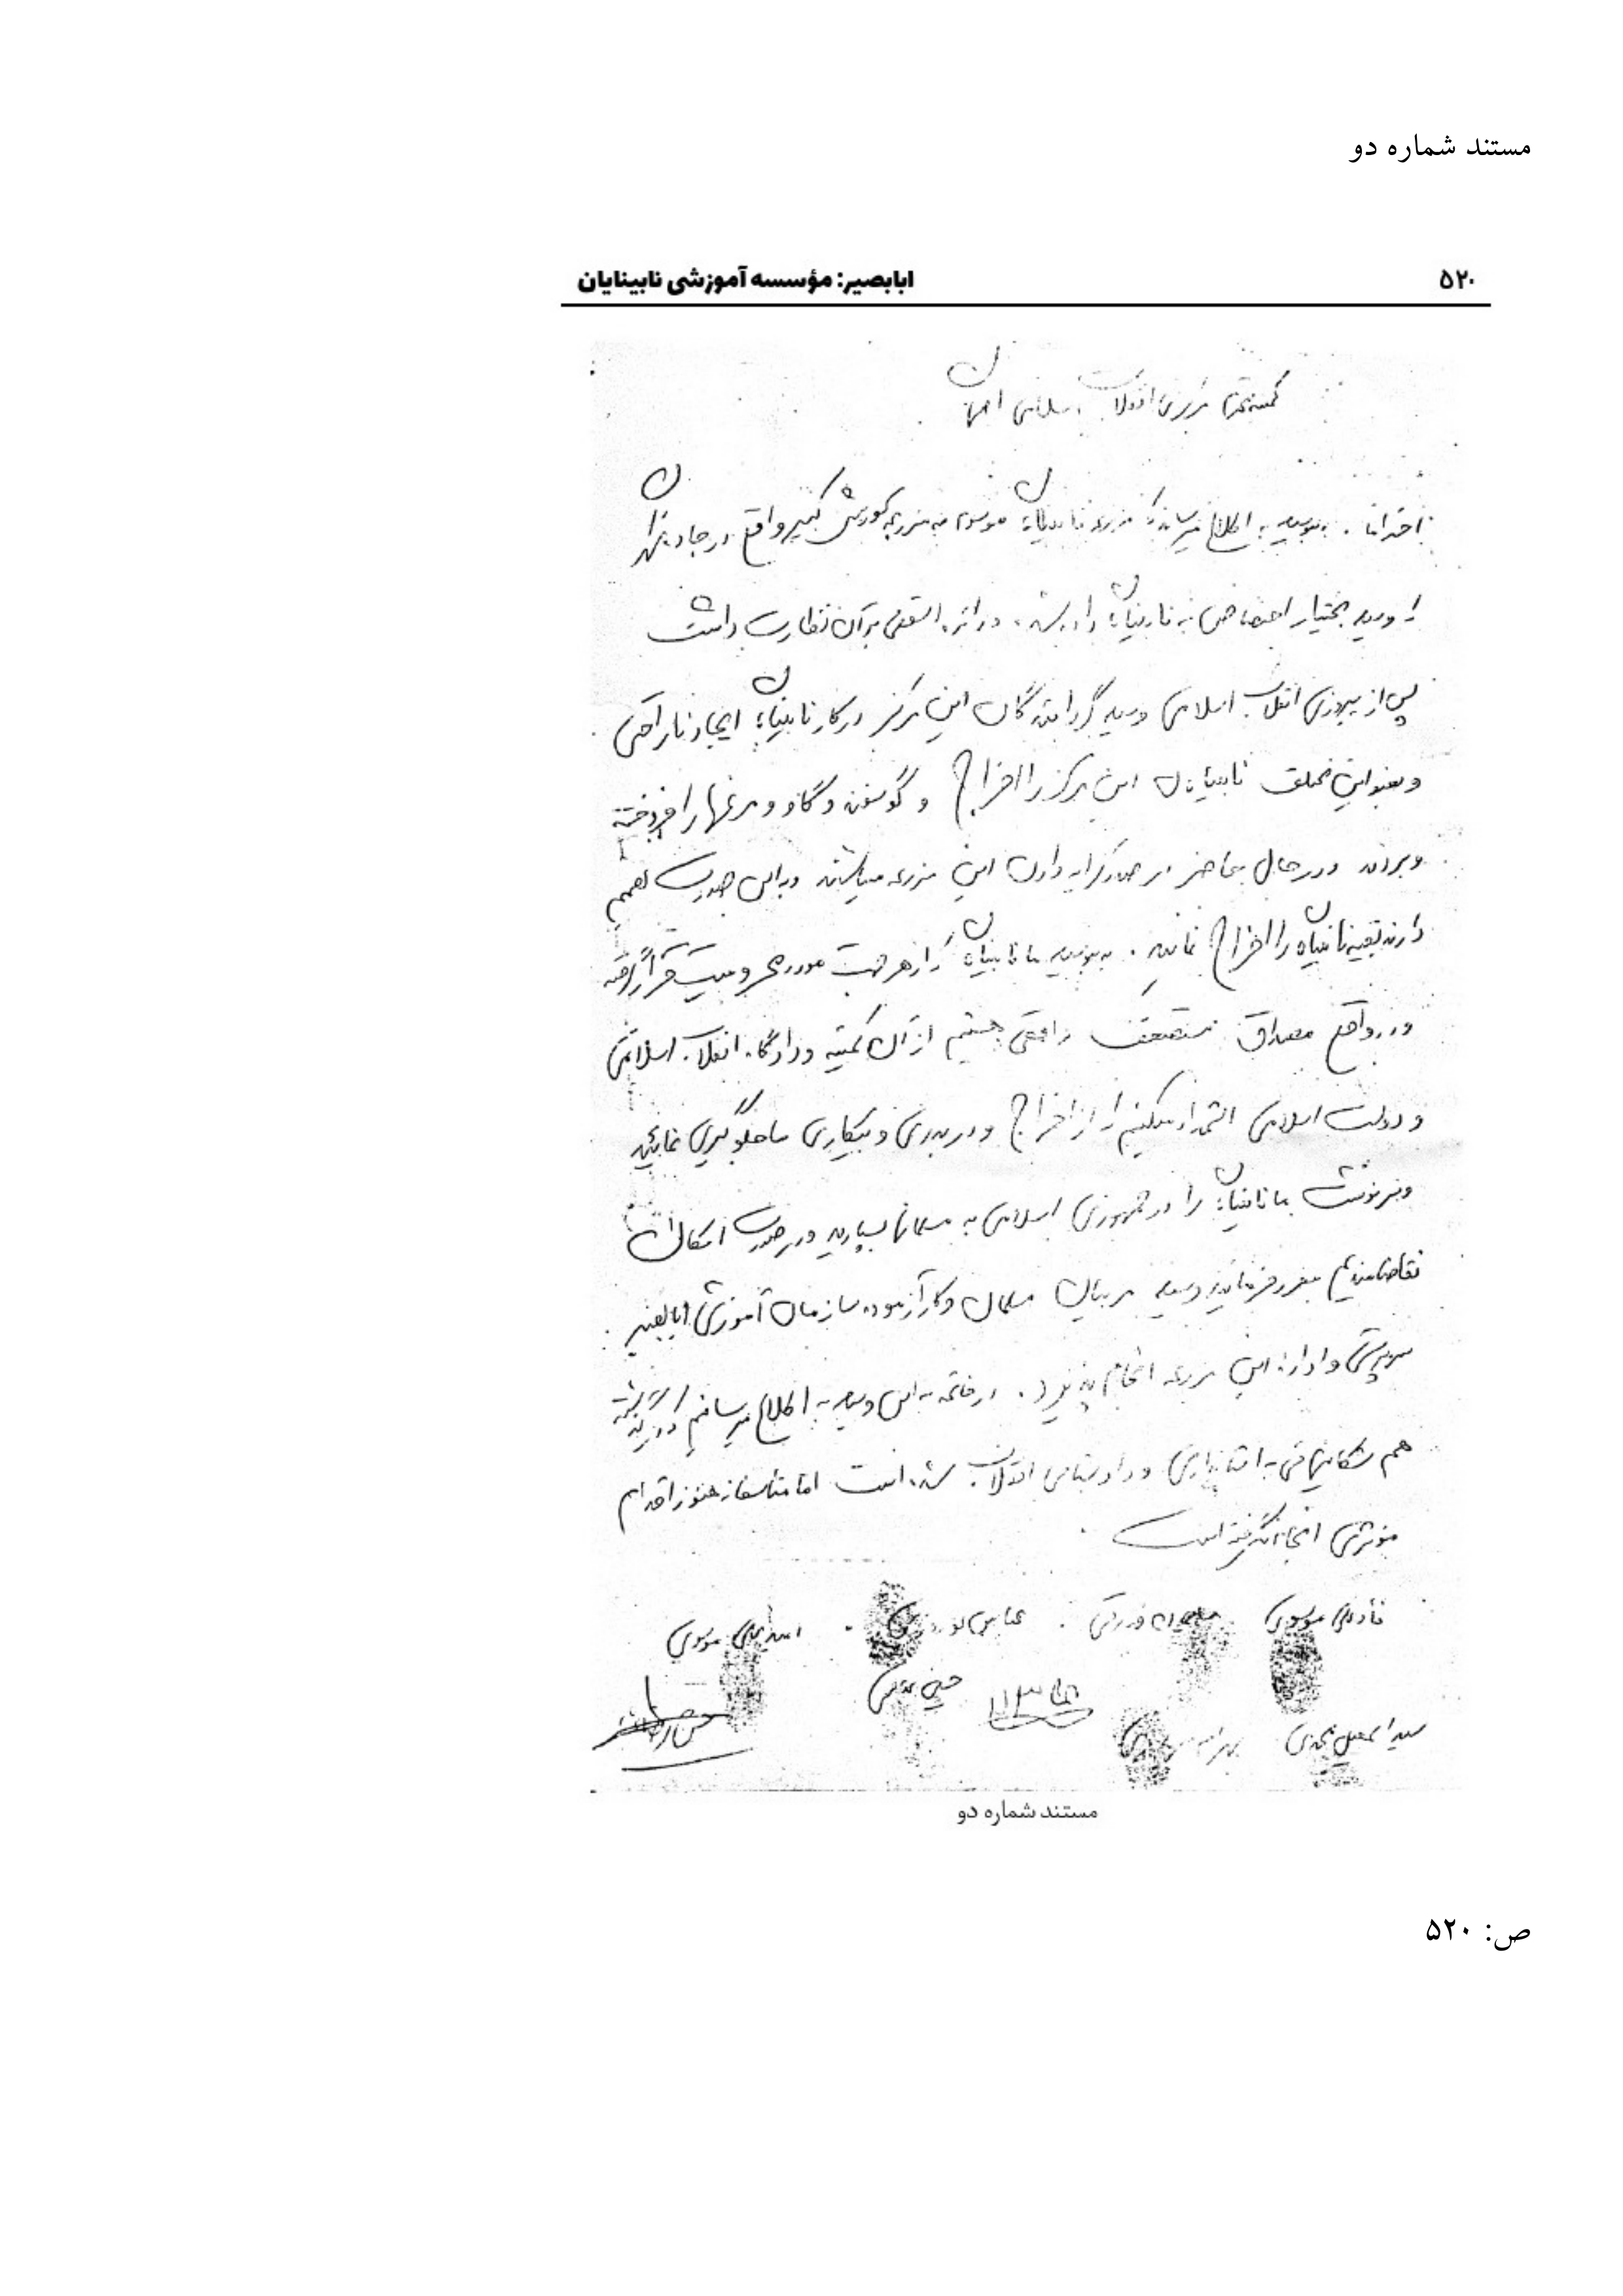 مستند شماره دو
۵۲۰
ابابصیر: مؤسسه آموزشی نابینایان
کمیته مرکزی انقلاب اسلامی اصفهان
احتراما . بدینوسیله به اطلاع میرساند که مزرعه نابینایان موسوم به مزرعه کورش کبیر واقع در جاده
بختیار اختصاص به نابینایان داده شده و بر آن نظارت داشت
پس از پیروزی انقلاب اسلامی وسیله گردانندگان این مرکز در کار نابینایان ایجاد ناراحتی
و بعناوین مختلف نابینایان این مرکز را اخراج و گوسفند و گاو و مرغها را فروخته
و بردند و در حال حاضر در صدد کرایه دادن این مزرعه میباشند و به این صورت تصمیم
دارند بقیه نابینایان را اخراج نمایند . بدینوسیله ما نابینایان که از هر جهت مورد محرومیت قرار گرفته
و در واقع مصداق مستضعف واقعی هستیم از آن کمیته و دادگاه انقلاب اسلامی
و دولت اسلامی استمداد میکنیم که از اخراج و دربدری و بیکاری ما جلوگیری نمائید
و سرنوشت ما نابینایان را در جمهوری اسلامی به مسلمانها بسپارید و در صورت امکان
تقاضامندیم مقرر فرمائید وسیله مربیان مسلمان و کارآزموده سازمان آموزشی ابابصیر
سرپرستی و اداره این مزرعه انجام پذیرد . در خاتمه به این وسیله به اطلاع میرسانیم که در گذشته
هم شکایتهائی به استانداری و دادستانی انقلاب شده است اما متأسفانه هنوز اقدام
موثری انجام نگرفته است .
موسوی عباس موسوی
سید اسمعیل
مستند شماره دو
ص: ۵۲۰